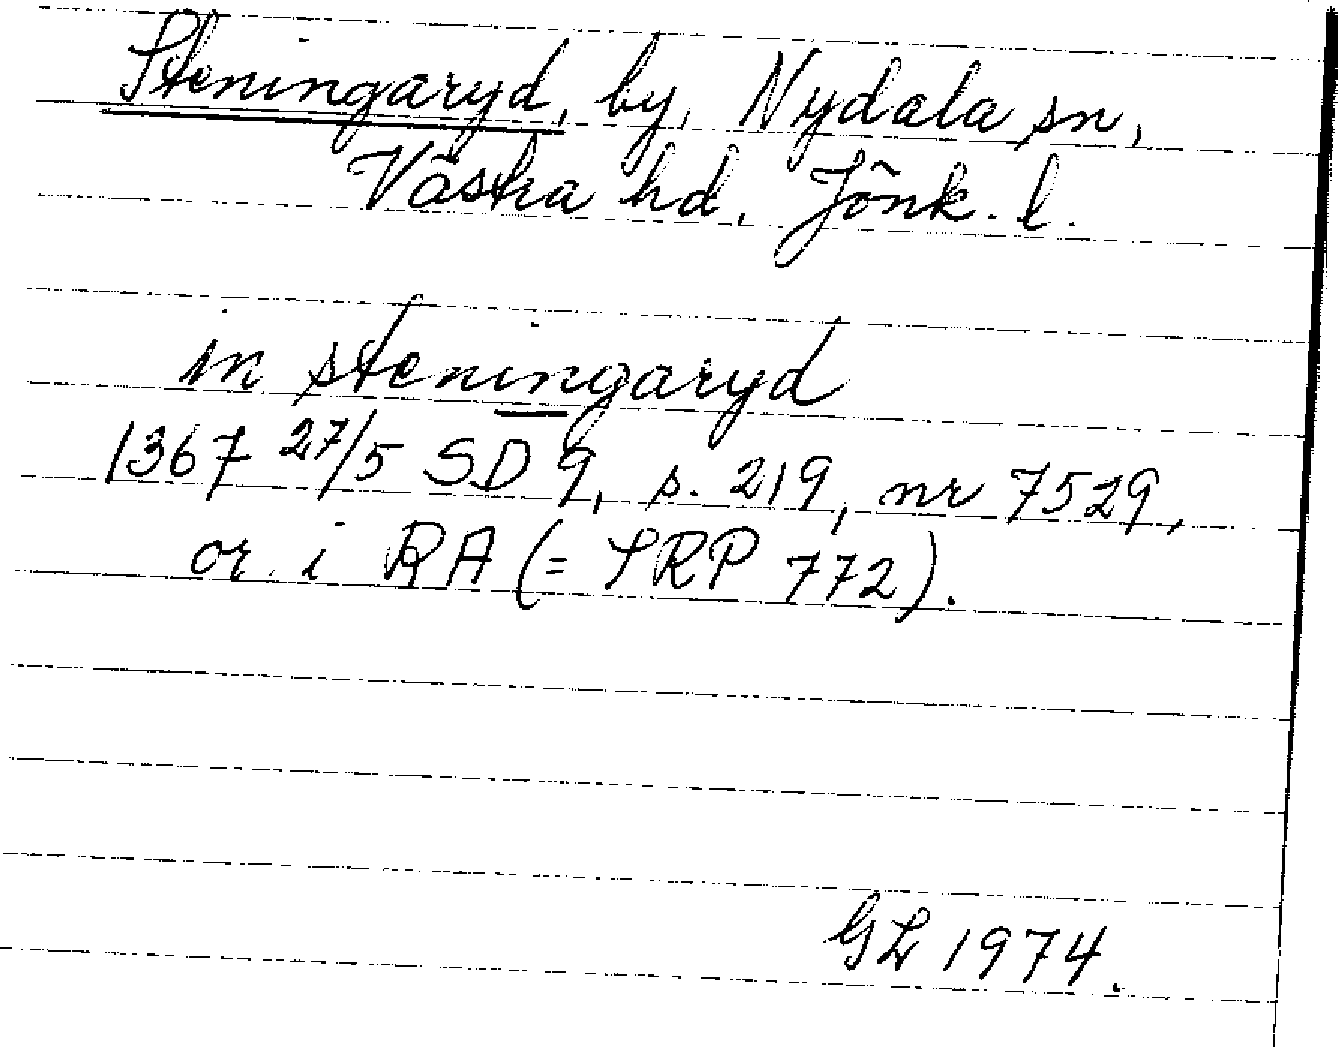 Steningaryd, by, Nydala sn,
Västra hd, Jönk. l.
in steningaryd
1367 27/5 SD 9, s. 219, nr 7529,
or. i RA (= SRP 772).
GL 1974.